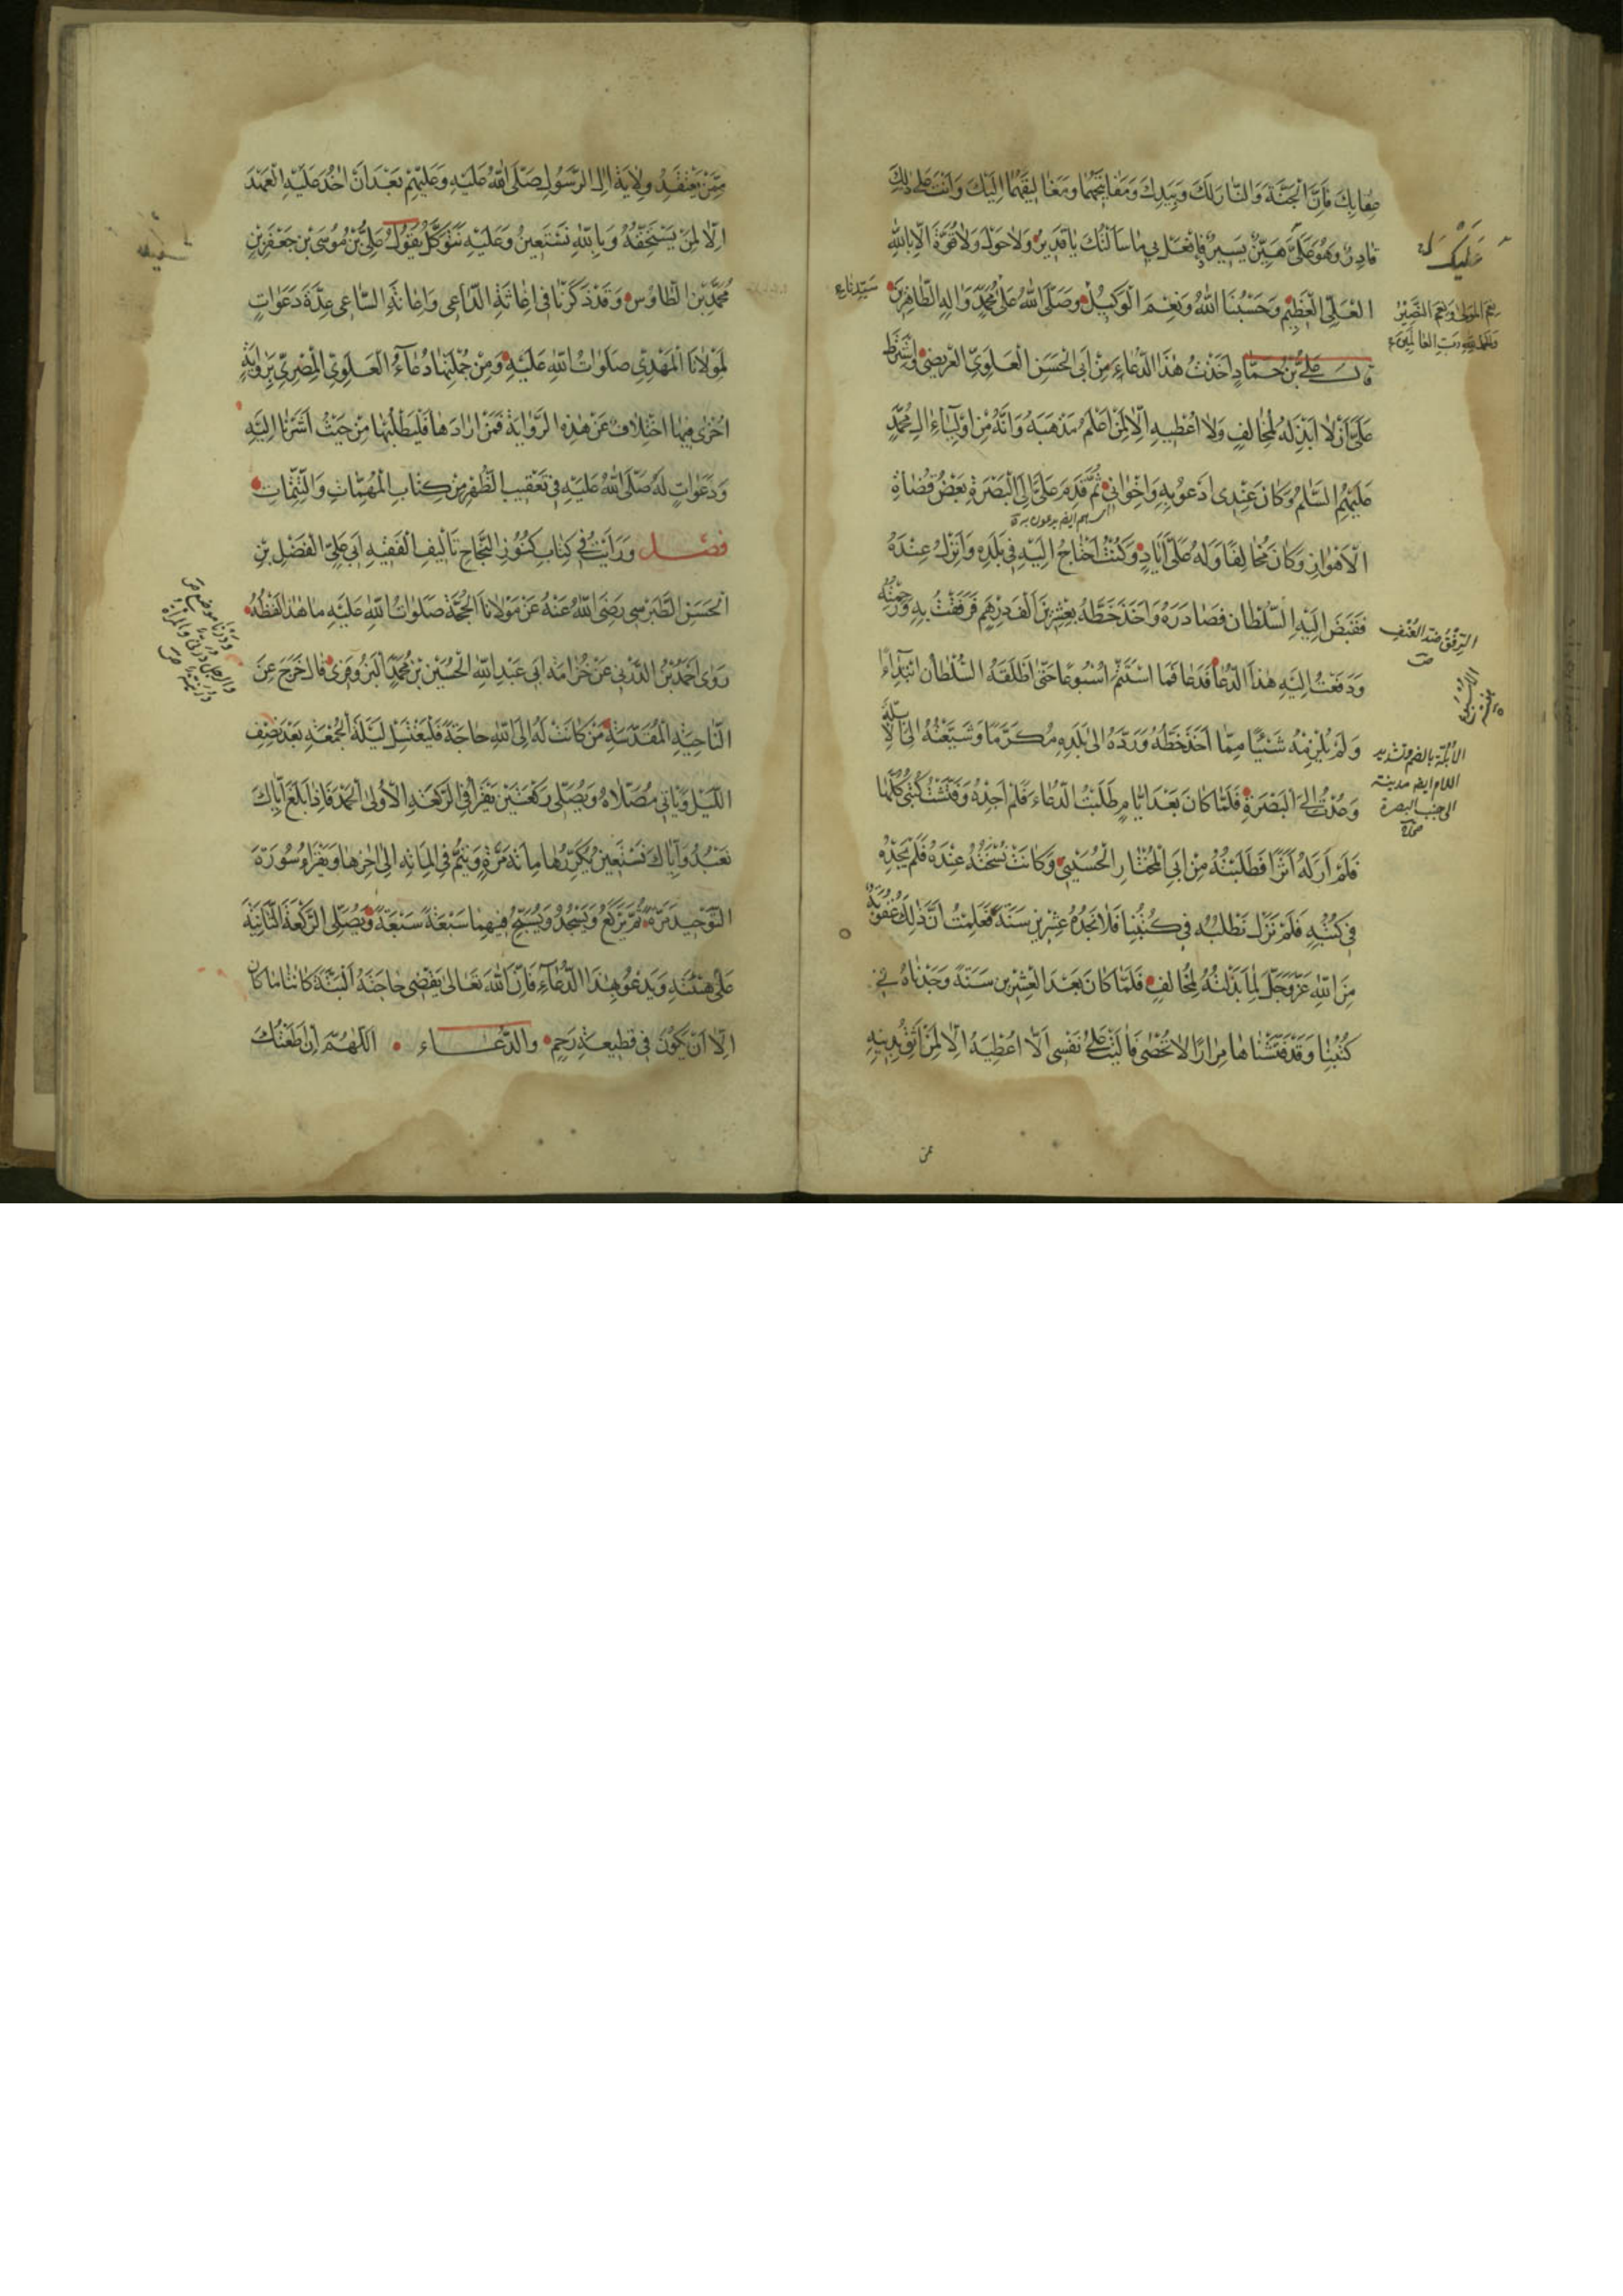 عِقابِكَ فَاِنَّ الْجَنَّةَ وَالنّارَ لَكَ وَبِيَدِكَ وَمَفاتيحَهُما وَمَغاليقَهُما اِلَيْكَ وَاَنْتَ عَلى ذلِكَ
قادِرٌ وَهُوَ عَلَيْكَ هَيِّنٌ يَسيرٌ فَافْعَلْ بي ما سَاَلْتُكَ يا قَديرُ وَلا حَوْلَ وَلا قُوَّةَ اِلّا بِاللهِ
العَلِيِّ الْعَظيمِ وَحَسْبُنَا اللهُ وَنِعْمَ الْوَكيلُ وَصَلَّى اللهُ عَلى مُحَمَّدٍ وَالِهِ الطّاهِرينَ
نِعْمَ المَوْلى وَنِعْمَ النَّصيرُ
وَالحَمْدُ لِلّهِ رَبِّ العالَمينَ
قالَ عَلِيُّ بْنُ حَمّادٍ اَخَذْتُ هذَا الدُّعاءَ مِنْ اَبِي الْحَسَنِ الْعَلَوِيِّ العُرَيْضِيِّ وَاشْتَرَطَ
عَلَيَّ اَنْ لا اَبْذِلَهُ لِمُخالِفٍ وَلا اُعْطِيَهِ اِلّا لِمَنْ اَعْلَمُ مَذْهَبَهُ وَاَنَّهُ مِنْ اَوْلِياءِ الِ مُحَمَّدٍ
عَلَيْهِمُ السَّلمُ وَكانَ عِنْدي اَدْعُو بِهِ وَاِخْواني ثُمَّ قَدِمَ عَلَيَّ اِلَى الْبَصْرَةِ بَعْضُ قُضاةِ
الْاَهْوازِ وَكانَ مُخالِفًا وَلَهُ عَلَيَّ اَيادٍ وَكُنْتُ اَحْتاجُ اِلَيْهِ في بَلَدِهِ وَاَنْزِلُ عِنْدَهُ
فَقَبَضَ اِلَيْهِ السُّلْطانُ فَصادَرَهُ وَاَخَذَ خَطَّهُ بِعِشْرينَ اَلْفَ دِرْهَمٍ فَرَفَقْتُ بِهِ وَرَحِمْتُهُ
الرِّفْقُ ضدّ العُنْفِ
وَدَفَعْتُ اِلَيْهِ هذَا الدُّعا فَدَعا فَمَا اسْتَتَمَّ اُسْبُوعًا حَتّى اَطْلَقَهُ السُّلْطانُ ابْتِداءً
وَلَمْ يُلْزِمْهُ شَيْئًا مِمّا اَخَذَ خَطَّهُ وَرَدَّهُ اِلى بَلَدِهِ مُكَرَّمًا وَشَيَّعْتُهُ اِلَى الْاُبُلَّةِ
الاُبُلَّة بالضم وتشديد
اللام ايضا مدينة
الى جنب البصرة
وَعُدْتُ اِلَى الْبَصْرَةِ فَلَمّا كانَ بَعْدَ اَيّامٍ طَلَبْتُ الدُّعاءَ فَلَمْ اَجِدْهُ وَفَتَّشْتُ كُتُبي كُلَّها
فَلَمْ اَرَ لَهُ اَثَرًا فَطَلَبْتُهُ مِنْ اَبِي الْمُخْتارِ الْحُسَيْنِيِّ وَكانَتْ نُسْخَتُهُ عِنْدَهُ فَلَمْ يَجِدْهُ
في كُتُبِهِ فَلَمْ نَزَلْ نَطْلُبُهُ في كُتُبِنا فَلا نَجِدُهُ عِشْرينَ سَنَةً فَعَلِمْتُ اَنَّ ذلِكَ عُقُوبَةٌ
مِنَ اللهِ عَزَّوَجَلَّ لِما بَذَلْتُهُ لِمُخالِفٍ فَلَمّا كانَ بَعْدَ الْعِشْرينَ سَنَةً وَجَدْناهُ في
كُتُبِنا وَقَدْ فَتَّشْناها مِرارًا لا تُحْصى فَالَيْتُ عَلى نَفْسي اَلّا اُعْطِيَهُ اِلّا لِمَنْ اَثِقُ بِدينِهِ
مِمَّنْ يَعْتَقِدُ وِلايَةَ الِ الرَّسُولِ صَلَّى اللهُ عَلَيْهِ وَعَلَيْهِمْ بَعْدَ اَنْ اخُذَ عَلَيْهِ الْعَهْدَ
اَلّا لِمَنْ يَسْتَحِقُّهُ وَبِاللهِ نَسْتَعينُ وَعَلَيْهِ نَتَوَكَّلُ يَقُولُ عَلِيُّ بْنُ مُوسَى بْنِ جَعْفَرِ بْنِ
مُحَمَّدِ بْنِ الطّاوُسِ وَقَدْ ذَكَرْنا في اِغاثَةِ الدّاعي وَاِعانَةِ السّاعي عِدَّةَ دَعَواتٍ
لِمَوْلانَا الْمَهْدِيِّ صَلَواتُ اللهِ عَلَيْهِ وَمِنْ جُمْلَتِها دُعاءُ الْعَلَوِيِّ الْمِصْرِيِّ بِرِوايَةٍ
اُخْرى فيهَا اخْتِلافٌ عَنْ هذِهِ الرِّوايَةِ فَمَنْ اَرادَها فَلْيَطْلُبْها مِنْ حَيْثُ اَشَرْنا اِلَيْهِ
وَدَعَواتٍ لَهُ صَلَّى اللهُ عَلَيْهِ في تَعْقيبِ الظُّهْرِ مِنْ كِتابِ الْمُهِمّاتِ وَالتَّتِمّاتِ
فصل وَرَاَيْتُ في كِتابِ كُنُوزِ النَّجاحِ تَأْليفِ الْفَقيهِ اَبي عَلِيٍّ الْفَضْلِ بْنِ
الْحَسَنِ الطَّبْرِسي رَضِيَ اللهُ عَنْهُ عَنْ مَوْلانَا الْحُجَّةِ صَلَواتُ اللهِ عَلَيْهِ ما هذا لَفْظُهُ
رَوى اَحْمَدُ بْنُ الدَّرْبي عَنْ خُزامَةَ اَبي عَبْدِ اللهِ الْحُسَيْنِ بْنِ مُحَمَّدٍ الْبَزُوفَري قالَ خَرَجَ عَنِ
النّاحِيَةِ الْمُقَدَّسَةِ مَنْ كانَتْ لَهُ اِلَى اللهِ حاجَةٌ فَلْيَغْتَسِلْ لَيْلَةَ الْجُمْعَةِ بَعْدَ نِصْفِ
اللَّيْلِ وَيَأْتي مُصَلّاهُ وَيُصَلّي رَكْعَتَيْنِ يَقْرَأُ فِي الرَّكْعَةِ الْاُولى الْحَمْدَ فَاِذا بَلَغَ اِيّاكَ
نَعْبُدُ وَاِيّاكَ نَسْتَعينُ يُكَرِّرُها مِائَةَ مَرَّةٍ وَيُتِمُّ فِي الْمِائَةِ اِلى اخِرِها وَيَقْرَاُ سُورَةَ
التَّوْحيدِ مَرَّةً ثُمَّ يَرْكَعُ وَيَسْجُدُ وَيُسَبِّحُ فيهِما سَبْعَةً سَبْعَةً وَيُصَلِّي الرَّكْعَةَ الثّانِيَةَ
عَلى هَيْئَتِهِ وَيَدْعُو بِهذَا الدُّعاءِ فَاِنَّ اللهَ تَعالى يَقْضي حاجَتَهُ اَلْبَتَّةَ كائِنًا ما كانَ
اِلّا اَنْ يَكُونَ في قَطيعَةِ رَحِمٍ والدُّعاء اَللّهُمَّ اِنْ اَطَعْتُكَ